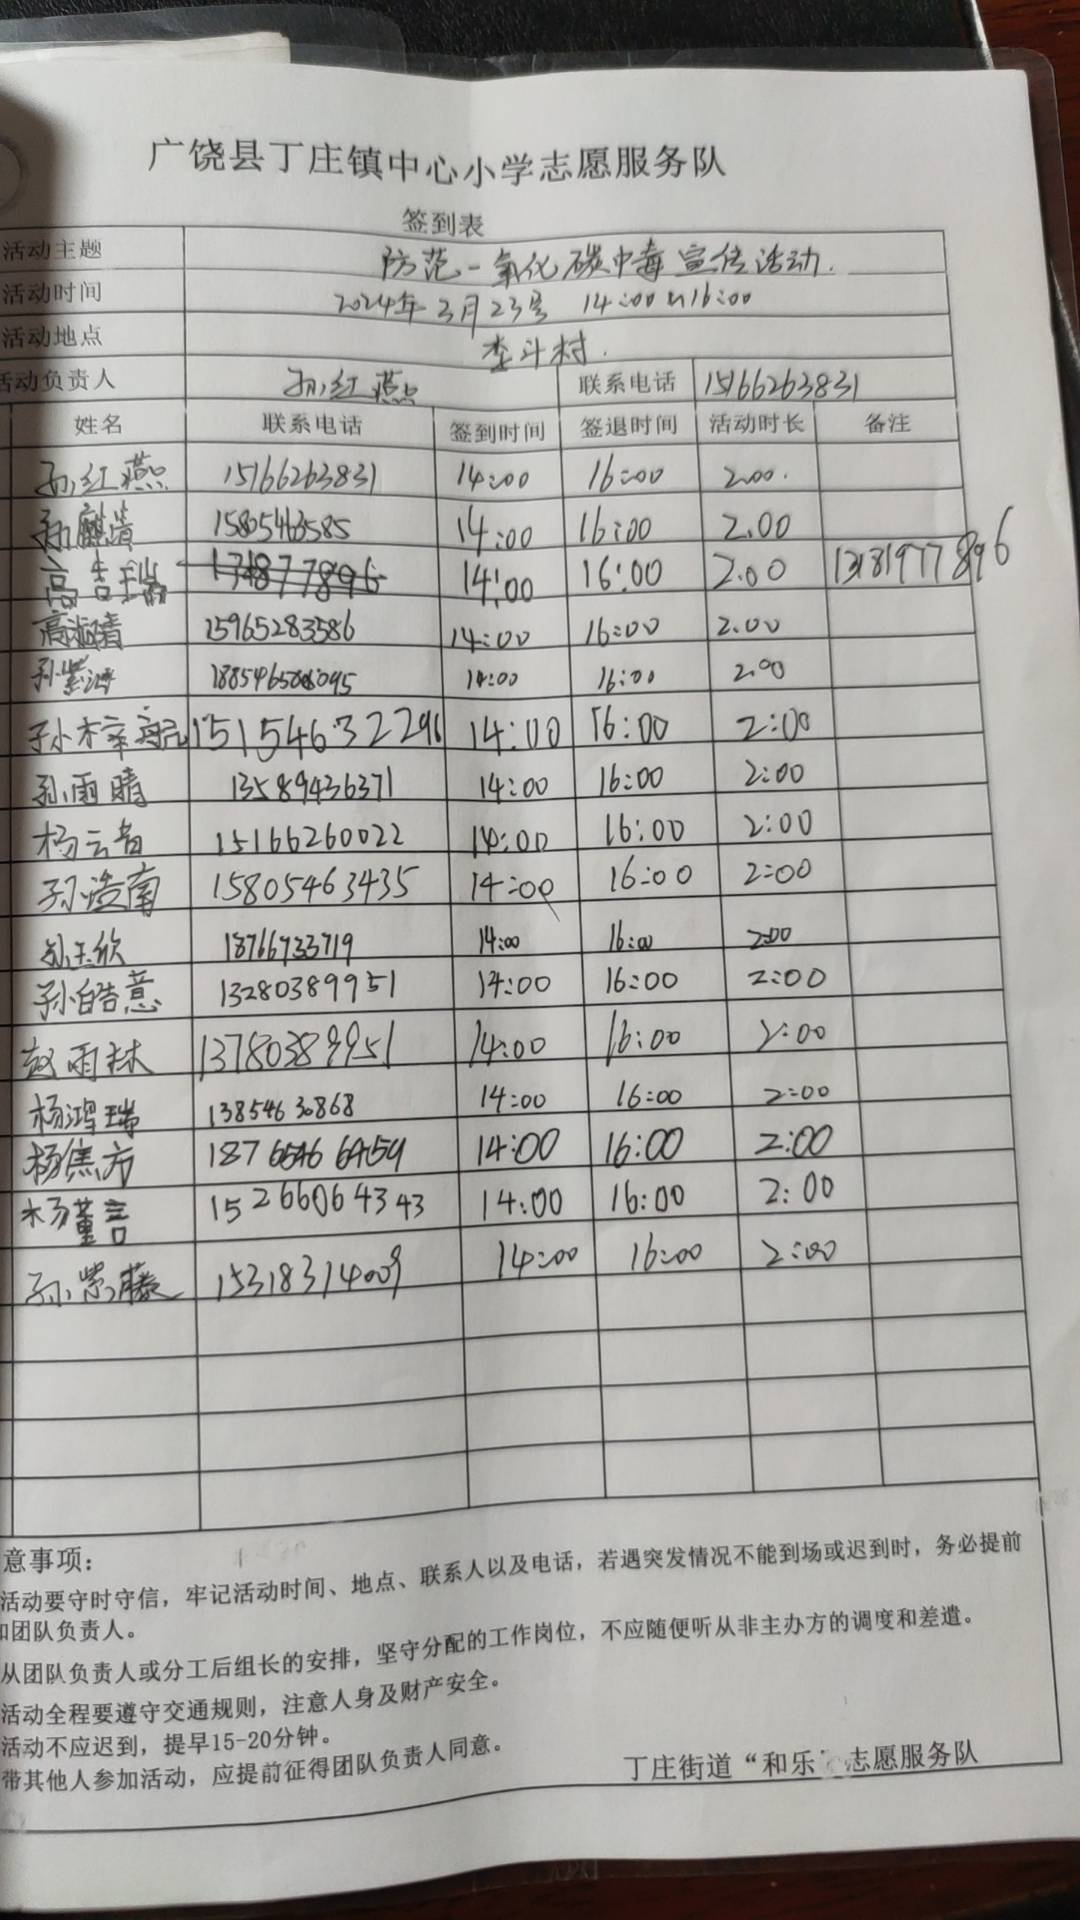 广饶县丁庄镇中心小学志愿服务队
签到表
活动主题 防范一氧化碳中毒宣传活动.
活动时间 2024年3月23号 14:00~16:00
活动地点 李斗村.
活动负责人 孙红燕 联系电话 15166263831
姓名 联系电话 签到时间 签退时间 活动时长 备注
孙红燕 15166263831 14:00 16:00 2.00.
孙麒 15805463585 14:00 16:00 2.00
高吉瑞 14:00 16:00 2.00 13181977896
高淑晴 15965283586 14:00 16:00 2.00
孙紫 14:00 16:00 2.00
孙梓航 15154632296 14:00 16:00 2:00
孙雨晴 13589436371 14:00 16:00 2:00
杨云 15166260022 14:00 16:00 2:00
孙浩南 15805463435 14:00 16:00 2:00
孙玉欣 18766733719 14:00 16:00 2:00
孙皓意 13280389951 14:00 16:00 2:00
赵雨林 13780389951 14:00 16:00 2:00
杨鸿瑞 13854630868 14:00 16:00 2:00
杨焦方 18766466459 14:00 16:00 2:00
杨董言 15266064343 14:00 16:00 2:00
孙紫藤 15318314009 14:00 16:00 2:00
意事项：
活动要守时守信，牢记活动时间、地点、联系人以及电话，若遇突发情况不能到场或迟到时，务必提前
和团队负责人。
从团队负责人或分工后组长的安排，坚守分配的工作岗位，不应随便听从非主办方的调度和差遣。
活动全程要遵守交通规则，注意人身及财产安全。
活动不应迟到，提早15-20分钟。
带其他人参加活动，应提前征得团队负责人同意。
丁庄街道“和乐”志愿服务队